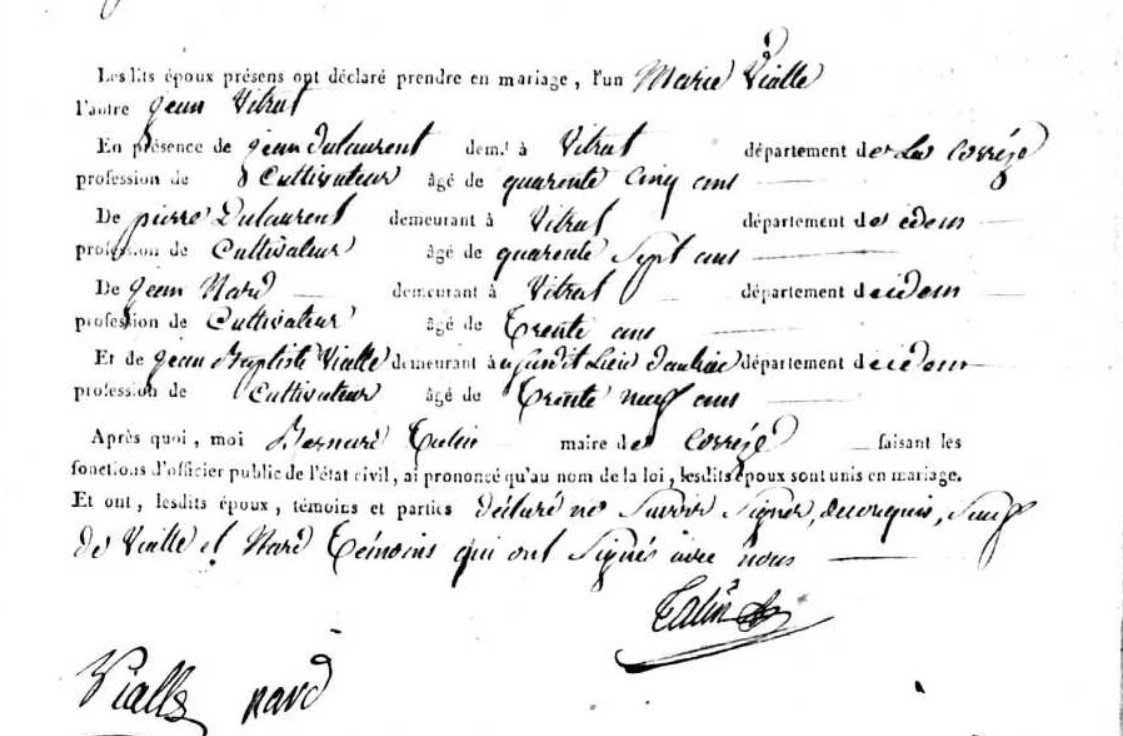 Lesdits époux présens ont déclaré prendre en mariage, l'un Marie Vialle
l'autre jean Vitrat
En présence de jean Dulaurent dem.t à Vitrat département de La Corrèze
profession de Cultivateur âgé de quarente Cinq ans
De pierre Dulaurent demeurant à Vitrat département de idem
profession de Cultivateur âgé de quarente Sept ans
De jean Nard demeurant à Vitrat département de idem
profession de Cultivateur âgé de Trente ans
Et de jean Baptiste Vialle demeurant à Lieu département de idem
profession de Cultivateur âgé de Trente neuf ans
Après quoi, moi Bernard maire de Corrèze faisant les
fonctions d'officier public de l'état civil, ai prononcé qu'au nom de la loi, lesdits époux sont unis en mariage.
Et ont, lesdits époux, témoins et parties déclaré ne Savoir Signer, de ce requis, Sauf
de Vialle et Nard Témoins qui ont Signés avec nous
Vialle nard